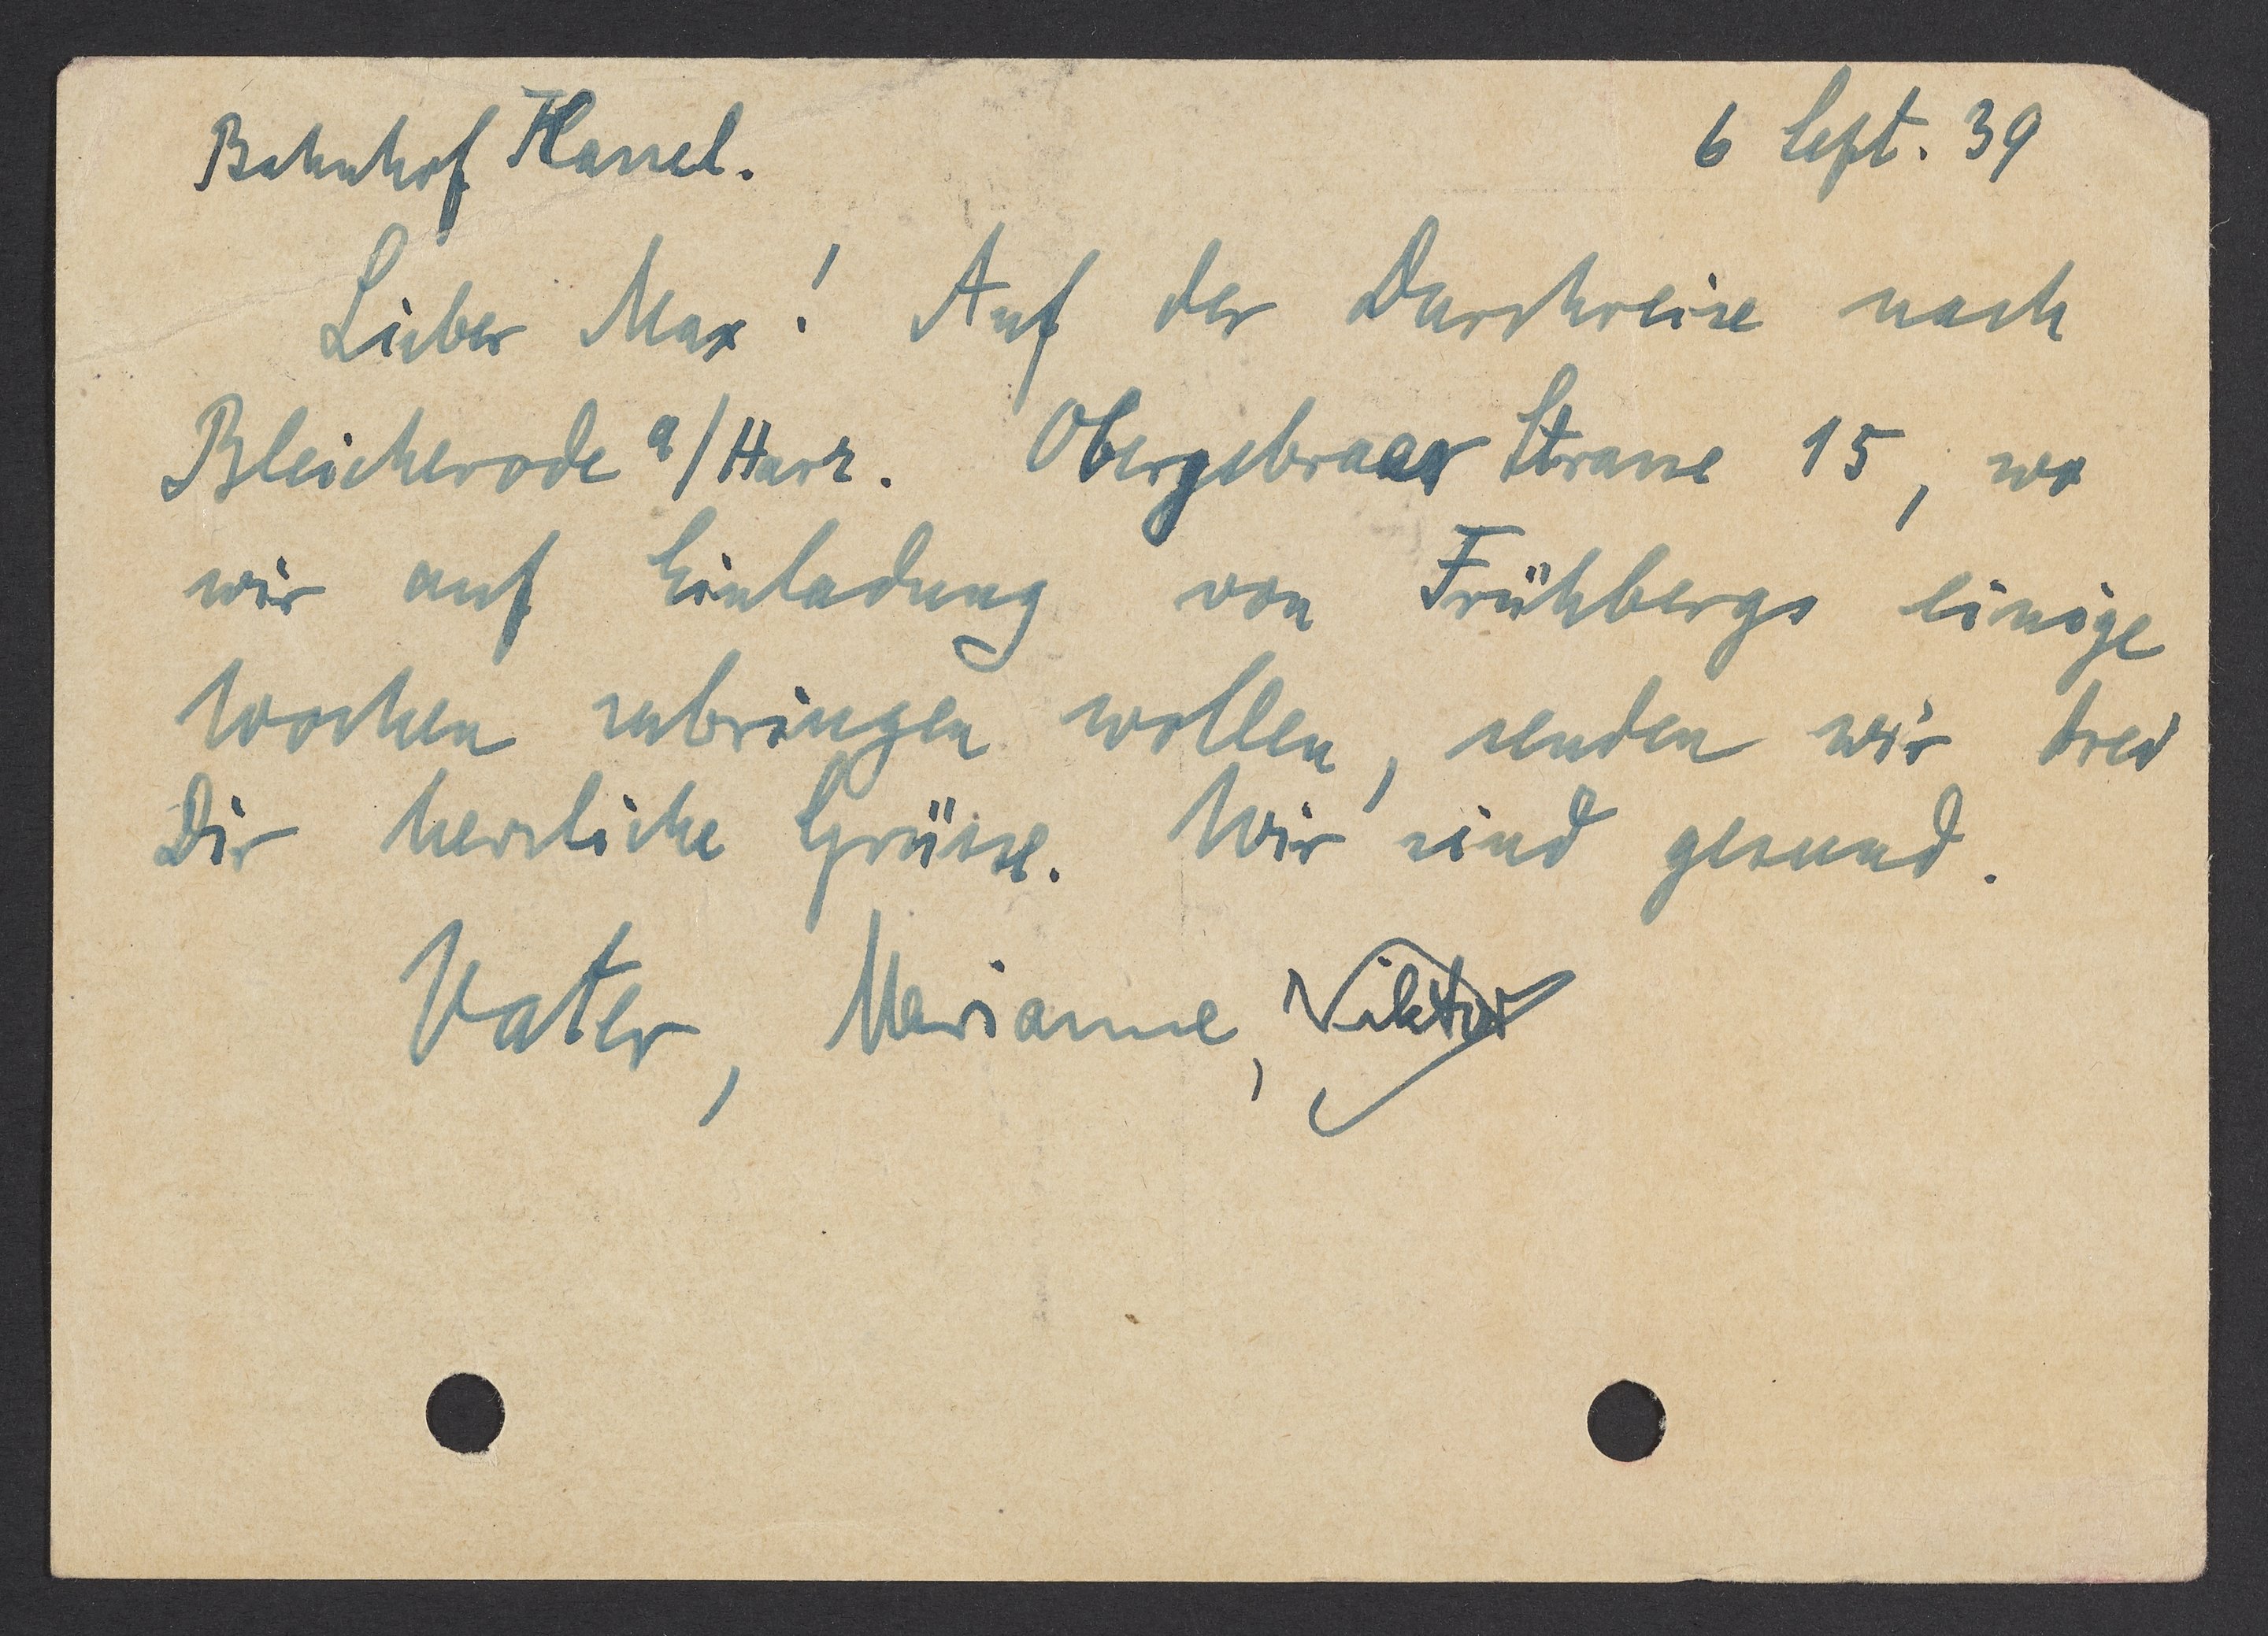 Bahnhof Kassel. 6 Sept. 39
Lieber Max! Auf der Durchreise nach
Bleicherode a/Harz. Obergebraer Strasse 15, wo
wir auf Einladung von Frühbergs einige
Wochen zubringen wollen, senden wir drei
Dir herzliche Grüsse. Wir sind gesund.
Vater, Marianne, Viktor